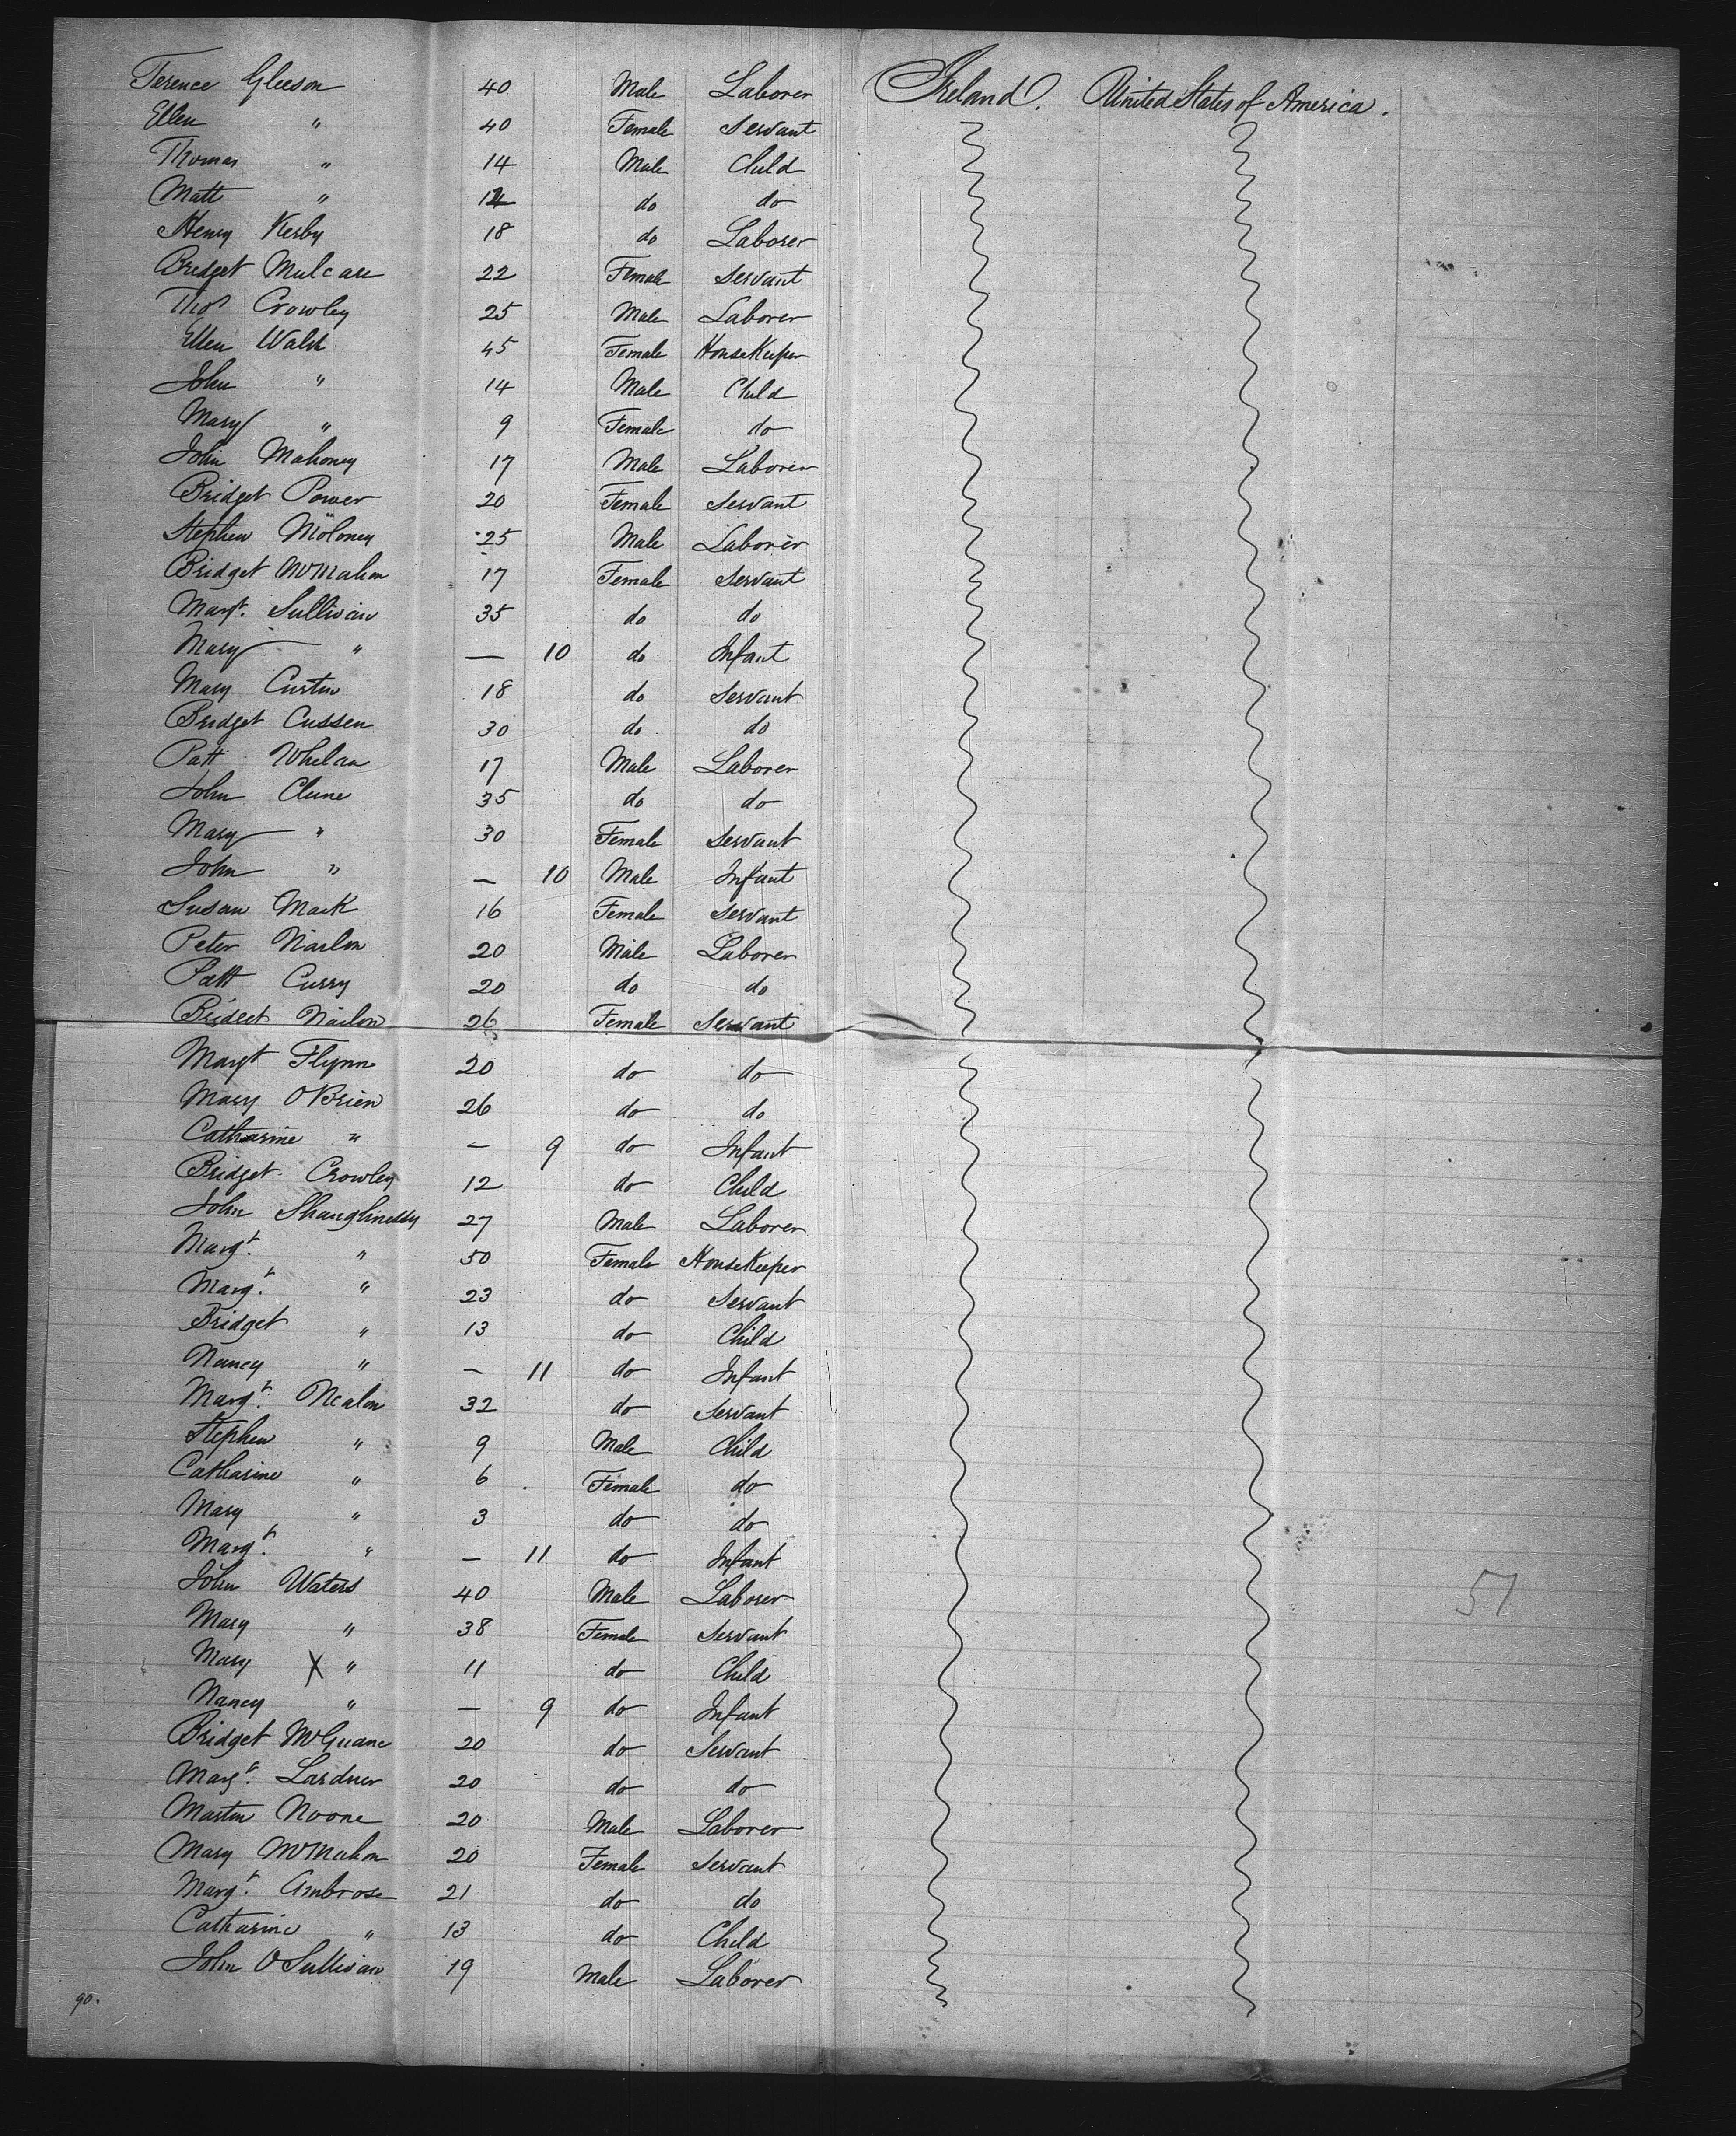 Terence Gleeson 40 Male Laborer Ireland. United States of America.
Ellen " 40 Female Servant
Thomas " 14 Male Child
Matt " 12 do do
Henry Kerby 18 do Laborer
Bridget Mulcare 22 Female Servant
Thos Crowley 25 Male Laborer
Ellen Walsh 45 Female HouseKeeper
John " 14 Male Child
Mary " 9 Female do
John Mahoney 17 Male Laborer
Bridget Power 20 Female Servant
Stephen Moloney 25 Male Laborer
Bridget McMahon 17 Female Servant
Margt. Sullivan 35 do do
Mary " — 10 do Infant
Mary Curtin 18 do Servant
Bridget Cussen 30 do do
Patt Whelan 17 Male Laborer
John Clune 35 do do
Mary " 30 Female Servant
John " — 10 Male Infant
Susan Mack 16 Female Servant
Peter 20 Male Laborer
Patt Curry 20 do do
Bridget 26 Female Servant
Margt Flynn 20 do do
Mary OBrien 26 do do
Catharine " — 9 do Infant
Bridget Crowley 12 do Child
John Shaughnessy 27 Male Laborer
Margt. " 50 Female HouseKeeper
Margt. " 23 do Servant
Bridget " 13 do Child
Nancy " — 11 do Infant
Margt. Nealon 32 do Servant
Stephen " 9 Male Child
Catharine " 6 Female do
Mary " 3 do do
Margt. " — 11 do Infant
John Waters 40 Male Laborer
51
Mary " 38 Female Servant
Mary X " 11 do Child
Nancy " — 9 do Infant
Bridget McGuane 20 do Servant
Margt. Lardner 20 do do
Martin Noone 20 Male Laborer
Mary McMahon 20 Female Servant
Margt. Ambrose 21 do do
Catharine " 13 do Child
John OSullivan 19 Male Laborer
90.